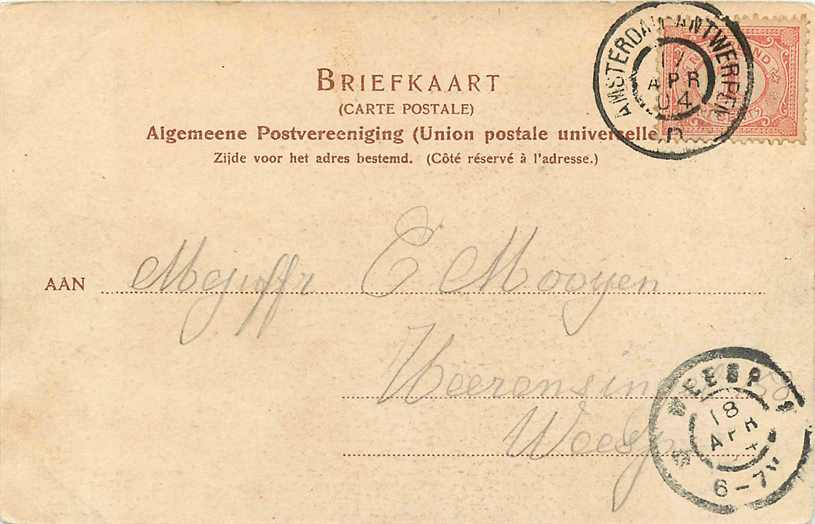 BRIEFKAART
(CARTE POSTALE)
Algemeene Postvereeniging (Union postale universelle.)
Zijde voor het adres bestemd. (Côté réservé à l'adresse.)
AMSTERDAM ANTWERPEN
7
APR
04
D
AAN Mejuffr E Mooyen
Weesp
WEESP
18
APR
4
6-7V